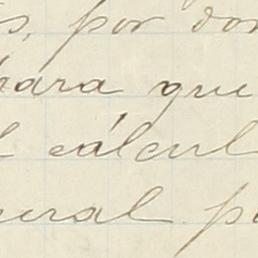 s, por don
para que
l cálcul
eral p